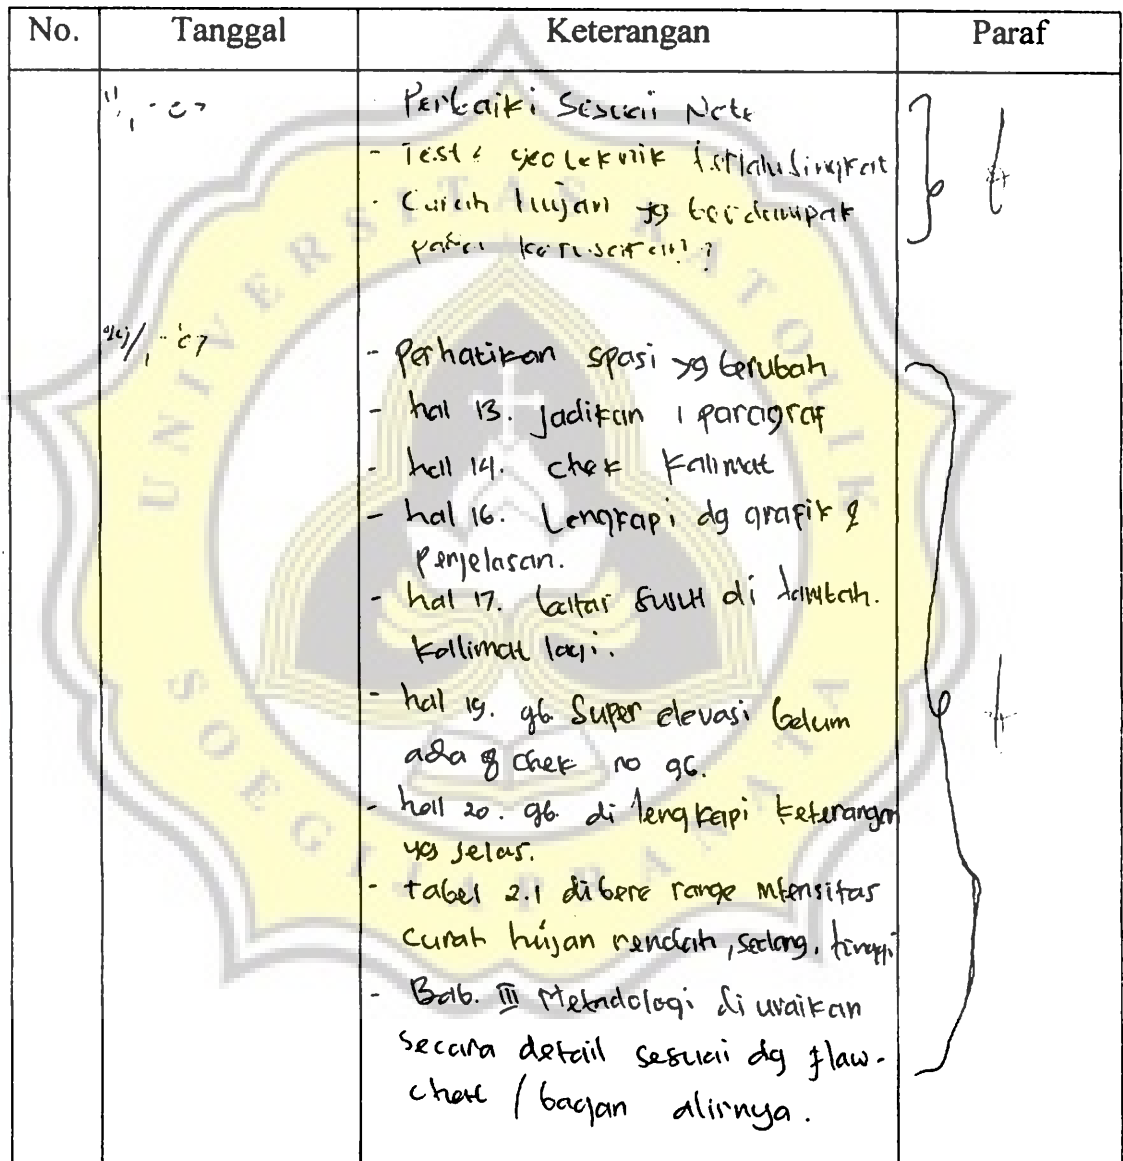 No. Tanggal Keterangan Paraf
11/1 - 07 Perbaiki Sesuai Note
- Test & geoteknik istilah singkat
- Curah hujan yg berdampak
pada kerusakan??
/1 - '07 - Perhatikan spasi yg berubah
- hal 13. jadikan 1 paragraf
- hal 14. chek kalimat
- hal 16. Lengkapi dg grafik &
penjelasan.
- hal 17. daftar di tambah.
kallimat lagi.
- hal 19. gb. Super elevasi belum
ada & chek no gb.
- hal 20. gb. di lengkapi keterangan
yg jelas.
- tabel 2.1 dibere range intensitas
curah hujan rendah, sedang, tinggi
- Bab. III Metodologi di uraikan
secara detail sesuai dg flaw-
chart / bagan alirnya.
UNIVERSITAS KATOLIK
SOEGIJAPRANATA